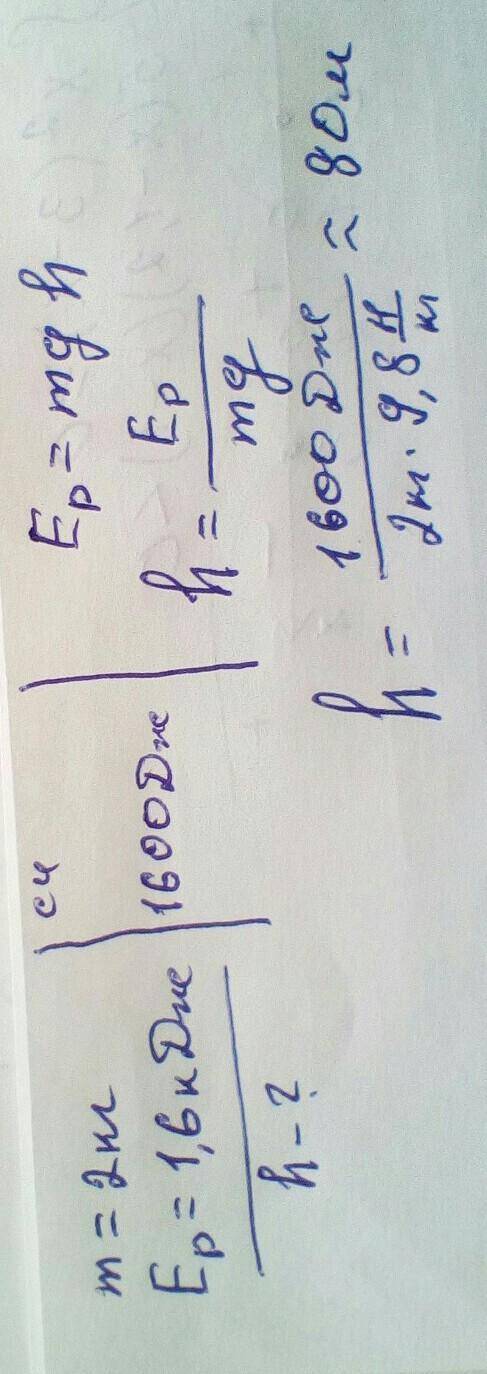 m = 2 кг
Eр = 1,6 кДж
h - ?
СИ
1600 Дж
Eр = mg h
h = Eр / mg
h = 1600 Дж / 2кг · 9,8 Н/кг ≈ 80м